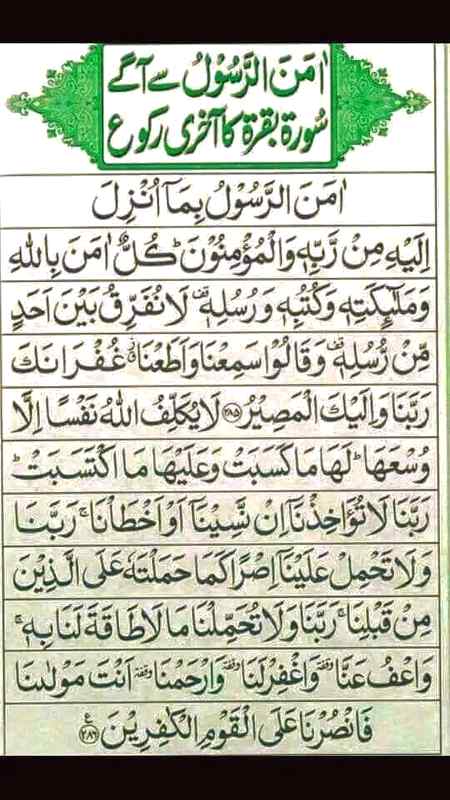 اٰمَنَ الرَّسُوْلُ سے آگے
سُورۃ بقرۃ کا آخری رکوع
اٰمَنَ الرَّسُوْلُ بِمَاۤ اُنْزِلَ
اِلَيْهِ مِنْ رَّبِّهٖ وَالْمُؤْمِنُوْنَ ؕ كُلٌّ اٰمَنَ بِاللّٰهِ
وَمَلٰٓئِكَتِهٖ وَكُتُبِهٖ وَرُسُلِهٖ ۫ لَا نُفَرِّقُ بَيْنَ اَحَدٍ
مِّنْ رُّسُلِهٖ ۫ وَقَالُوْا سَمِعْنَا وَاَطَعْنَا ۫ غُفْرَانَكَ
رَبَّنَا وَاِلَيْكَ الْمَصِيْرُ ﴿۲۸۵﴾ لَا يُكَلِّفُ اللّٰهُ نَفْسًا اِلَّا
وُسْعَهَا ؕ لَهَا مَا كَسَبَتْ وَعَلَيْهَا مَا اكْتَسَبَتْ ؕ
رَبَّنَا لَا تُؤَاخِذْنَاۤ اِنْ نَّسِيْنَاۤ اَوْ اَخْطَاْنَا ۚ رَبَّنَا
وَلَا تَحْمِلْ عَلَيْنَاۤ اِصْرًا كَمَا حَمَلْتَهٗ عَلَى الَّذِيْنَ
مِنْ قَبْلِنَا ۚ رَبَّنَا وَلَا تُحَمِّلْنَا مَا لَا طَاقَةَ لَنَا بِهٖ ۚ
وَاعْفُ عَنَّا وقفة وَاغْفِرْ لَنَا وقفة وَارْحَمْنَا وقفة اَنْتَ مَوْلٰىنَا
فَانْصُرْنَا عَلَى الْقَوْمِ الْكٰفِرِيْنَ ﴿۲۸۶﴾ ع